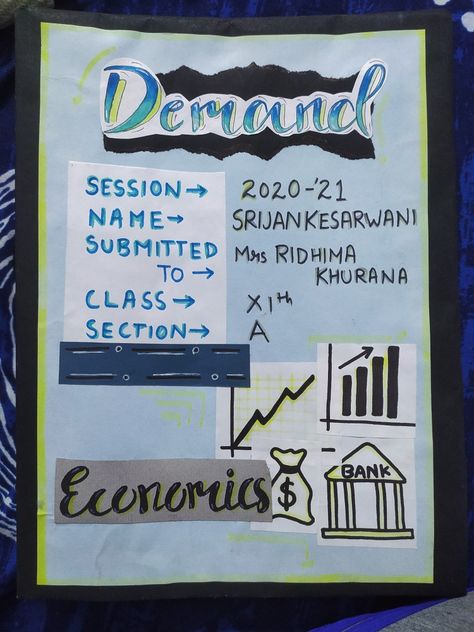 Demand
SESSION→ 2020-'21
NAME→ SRIJAN KESARWANI
SUBMITTED Mrs RIDHIMA
TO → KHURANA
CLASS→ XIth
SECTION→ A
$
BANK
Economics